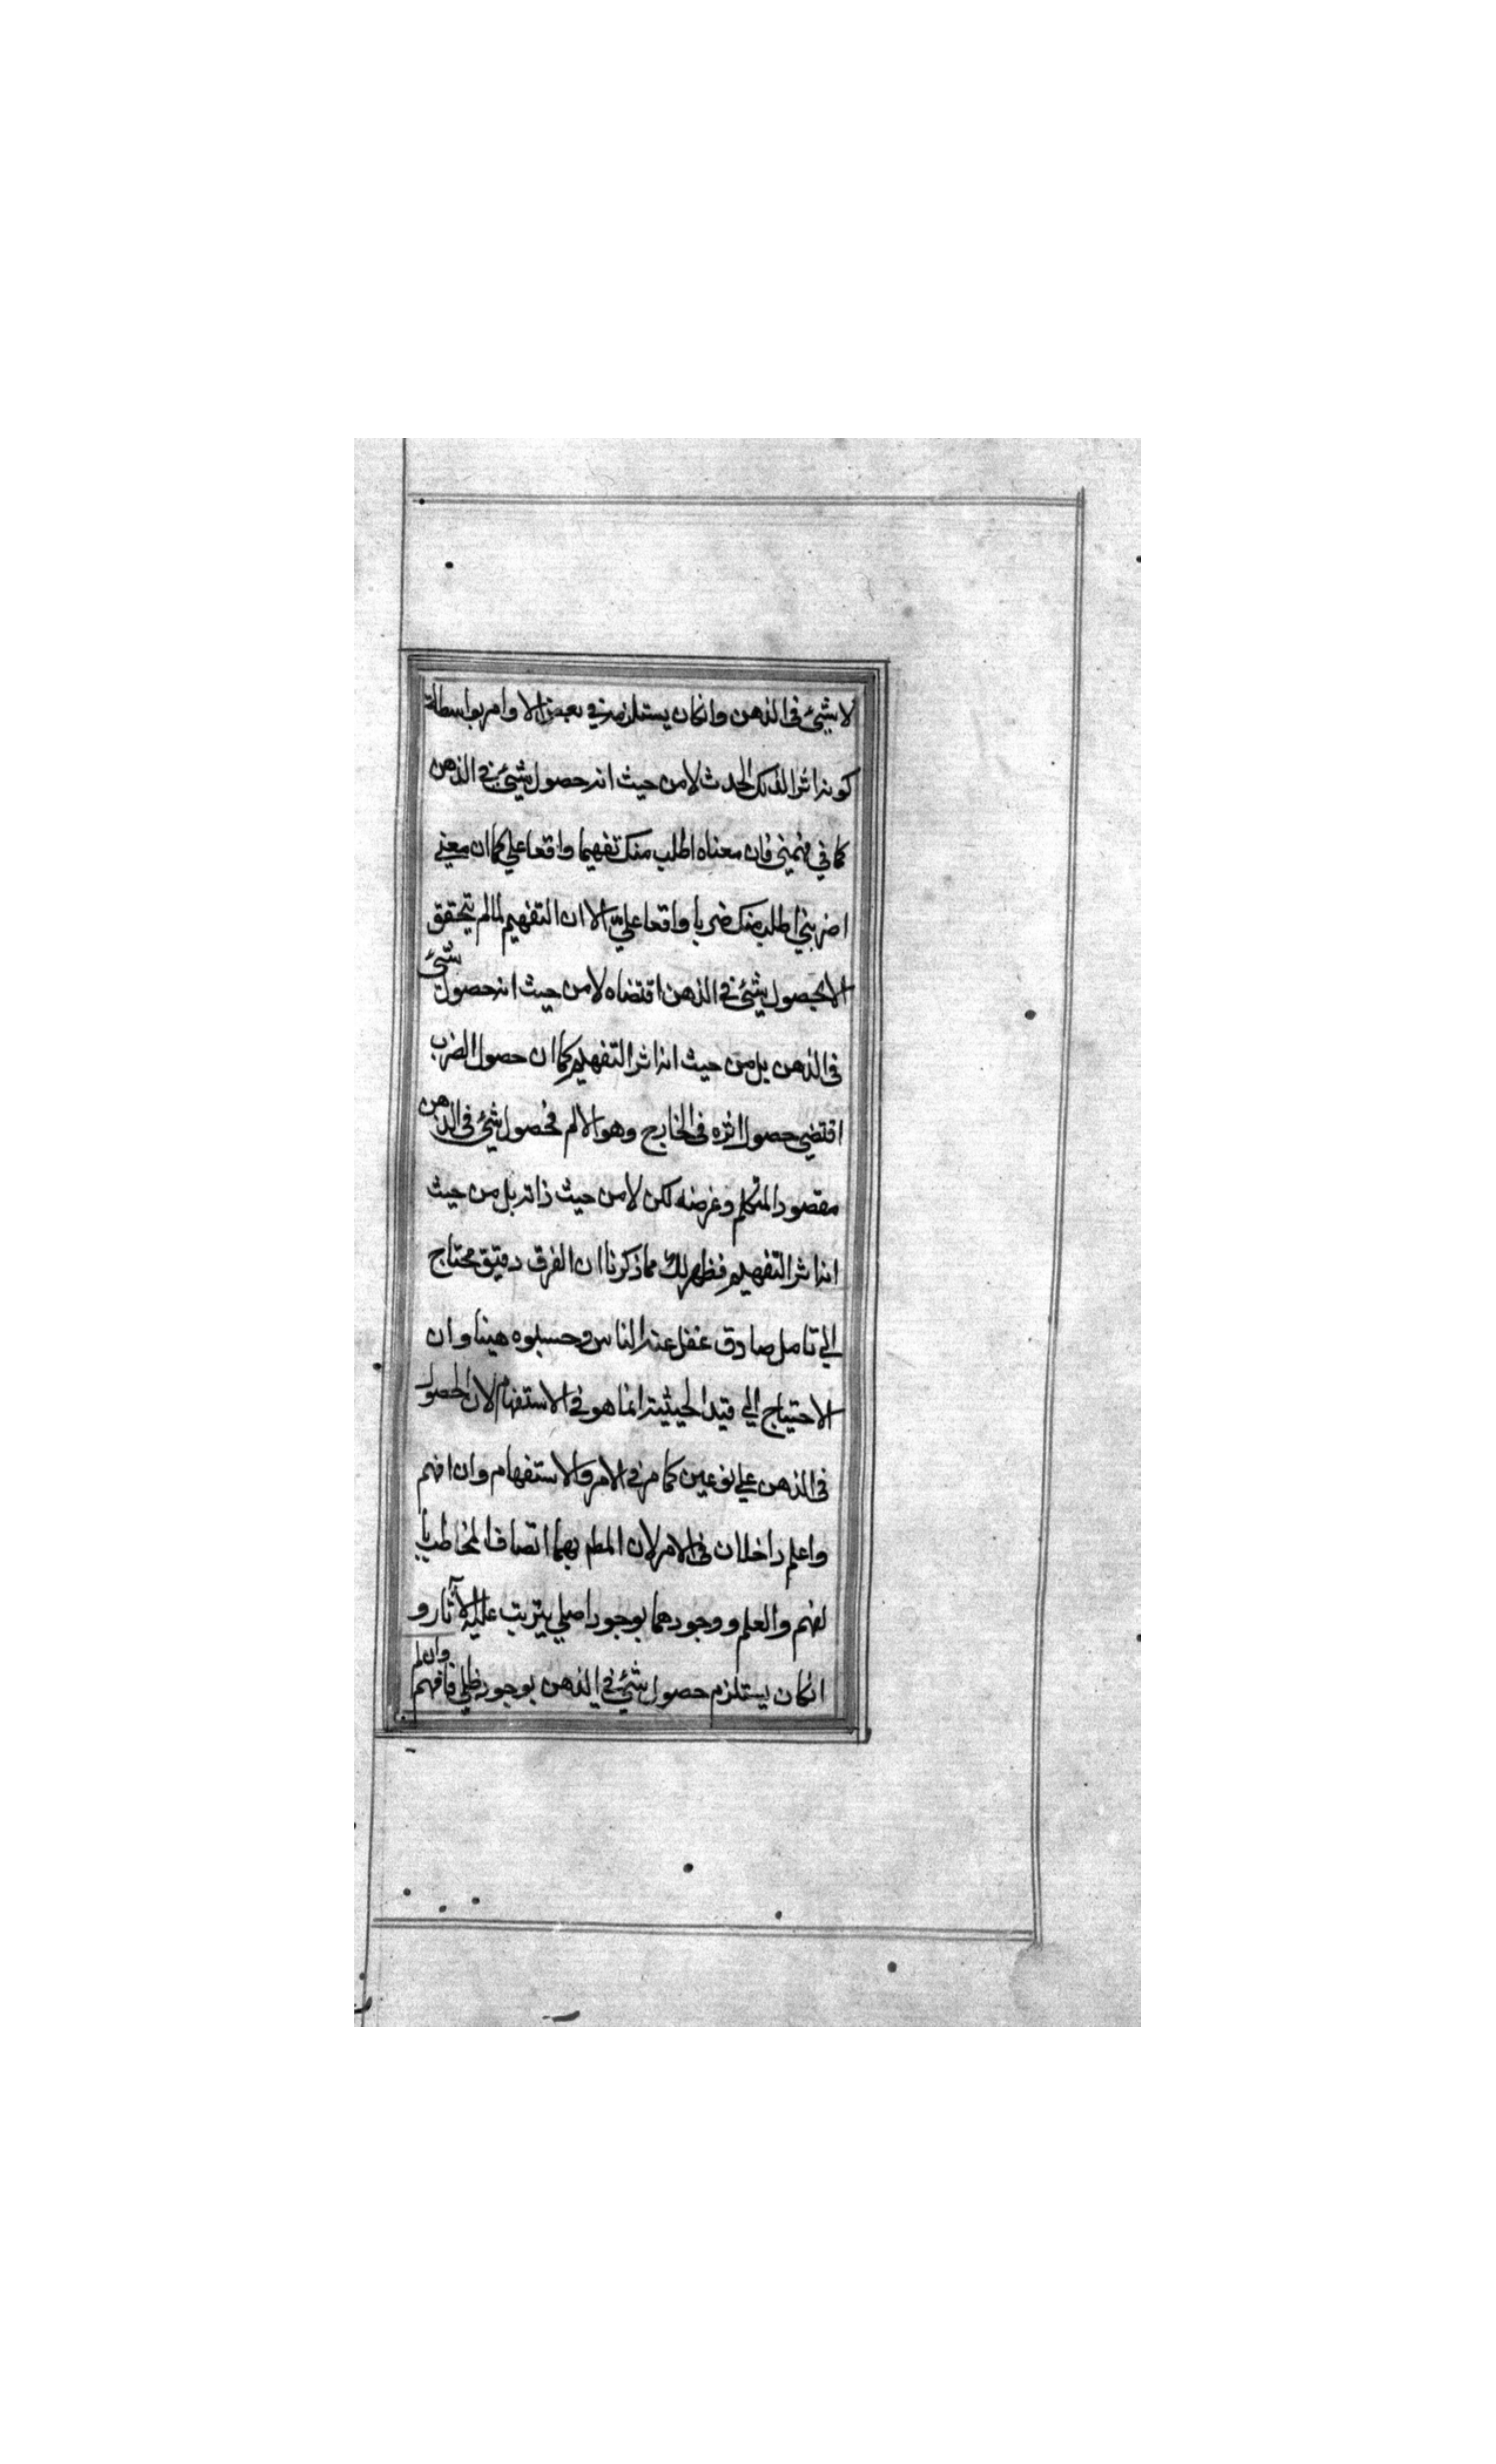 لا شيئ فى الذهن وانكان يستلزمه في بعض الاوامر بواسطة
كونه اثر الذلك الحدث لا من حيث انه حصول شيئ في الذهن
كما في فهمني فان معناه اطلب منك تفهيما واقعا علي كما ان معنے
اضربني اطلب منك ضربا واقعا علي الا ان التفهيم لما لم يتحقق
الا بحصول شيئ في الذهن اقتضاه لا من حيث انه حصول شيئ
فى الذهن بل من حيث انه اثر التفهيم كما ان حصول الضرب
اقتضي حصول اثره فى الخارج وهو الالم فحصول شيئ فى الذهن
مقصود المتكلم وغرضه لكن لا من حيث ذاته بل من حيث
انه اثر التفهيم فظهر لك مما ذكرنا ان الفرق دقيق محتاج
الي تامل صادق غفل عنه الناس وحسبوه هينا وان
الاحتياج الي قيد الحيثية انما هو في الاستفهام لان الحصول
فى الذهن علي نوعين كما مر في الامر والاستفهام وان افهم
واعلم داخلان فى الامر لان المطم بهما اتصاف المخاطب با
لفهم والعلم ووجودهما بوجود اصلي يترتب عليه الآثار و
انكان يستلزم حصول شيئ في الذهن بوجود ظلي فافهم وان لم